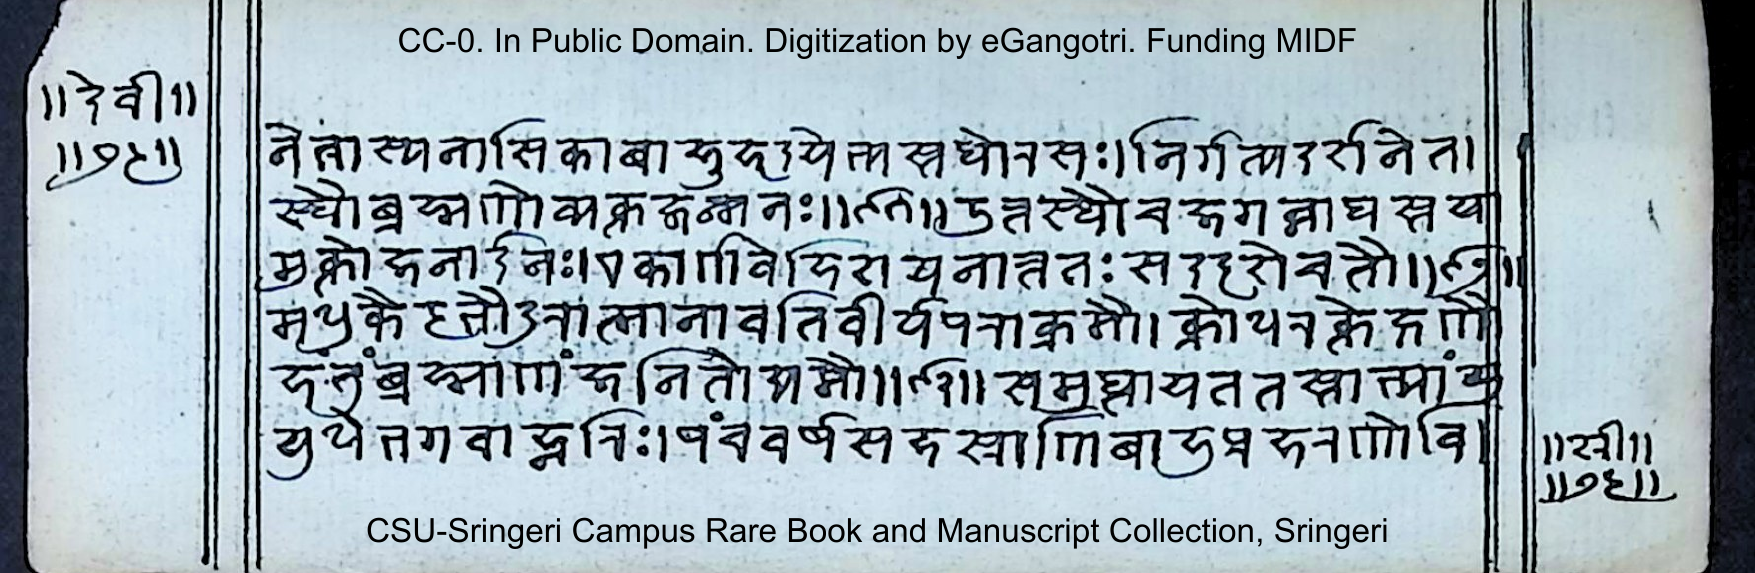 CC-0. In Public Domain. Digitization by eGangotri. Funding MIDF
॥देवी॥
नेत्रास्यनासिकाबाहुहृदयेभ्यस्तथोरसः।निर्गम्यदर्शनेत
स्थौब्रह्मणोव्यक्तजन्मनः॥ ॥उत्तस्थौचजगन्नाथस्तया
मुक्तोजनार्दनः।एकार्णवेहिशयनात्ततःसददृशेचतौ॥ ॥
मधुकैटभौदुरात्मानावतिवीर्यपराक्रमौ।क्रोधरक्तेक्षणौ
हंतुंब्रह्माणंजनितोद्यमौ॥ ॥समुत्थायततस्ताभ्यांयु
युधेभगवान्हरिः।पंचवर्षसहस्राणिबाहुप्रहरणोवि
CSU-Sringeri Campus Rare Book and Manuscript Collection, Sringeri